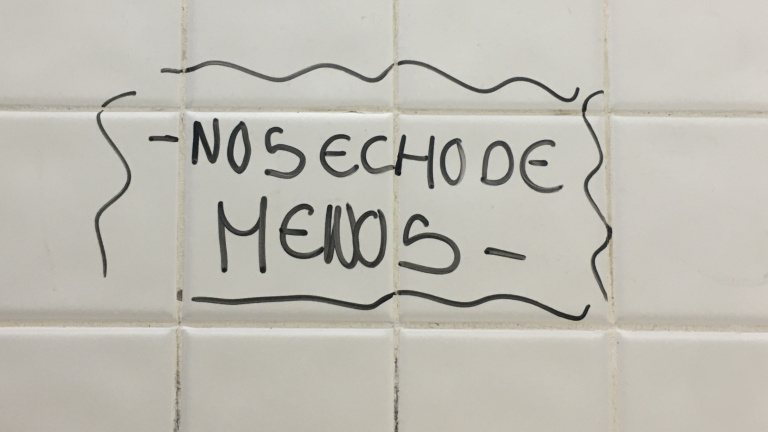 -NOS ECHO DE
MENOS-